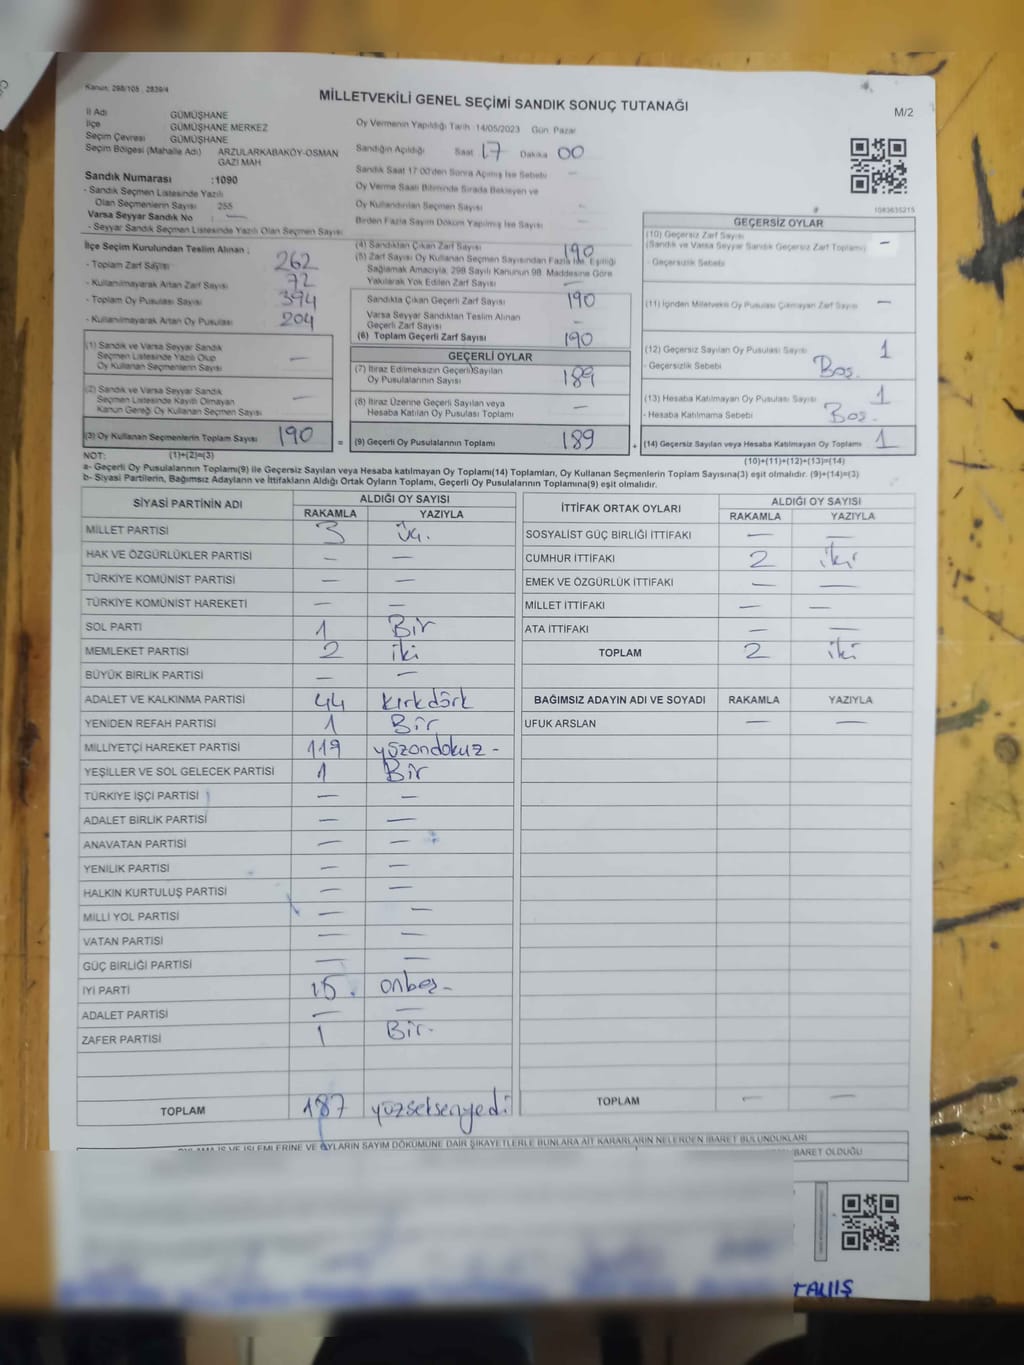 Kanun: 298/105 , 2839/4
MİLLETVEKİLİ GENEL SEÇİMİ SANDIK SONUÇ TUTANAĞI
M/2
İl Adı GÜMÜŞHANE
İlçe GÜMÜŞHANE MERKEZ
Seçim Çevresi GÜMÜŞHANE
Seçim Bölgesi (Mahalle Adı) ARZULARKABAKÖY-OSMAN GAZİ MAH
Sandık Numarası :1090
- Sandık Seçmen Listesinde Yazılı
Olan Seçmenlerin Sayısı 255
Varsa Seyyar Sandık No : —
- Seyyar Sandık Seçmen Listesinde Yazılı Olan Seçmen Sayısı
Oy Vermenin Yapıldığı Tarih 14/05/2023 Gün Pazar
Sandığın Açıldığı Saat 17 Dakika 00
Sandık Saat 17:00'den Sonra Açılmış İse Sebebi —
Oy Verme Saati Bitiminde Sırada Bekleyen ve
Oy Kullandırılan Seçmen Sayısı —
Birden Fazla Sayım Döküm Yapılmış İse Sayısı —
1083635215
İlçe Seçim Kurulundan Teslim Alınan ;
- Toplam Zarf Sayısı 262
- Kullanılmayarak Artan Zarf Sayısı 72
- Toplam Oy Pusulası Sayısı 394
- Kullanılmayarak Artan Oy Pusulası 204
(1) Sandık ve Varsa Seyyar Sandık
Seçmen Listesinde Yazılı Olup
Oy Kullanan Seçmenlerin Sayısı —
(2) Sandık ve Varsa Seyyar Sandık
Seçmen Listesinde Kayıtlı Olmayan
Kanun Gereği Oy Kullanan Seçmen Sayısı —
(3) Oy Kullanan Seçmenlerin Toplam Sayısı 190
(4) Sandıktan Çıkan Zarf Sayısı 190
(5) Zarf Sayısı Oy Kullanan Seçmen Sayısından Fazla İse, Eşitliği
Sağlamak Amacıyla, 298 Sayılı Kanunun 98. Maddesine Göre
Yakılarak Yok Edilen Zarf Sayısı —
Sandıkta Çıkan Geçerli Zarf Sayısı 190
Varsa Seyyar Sandıktan Teslim Alınan
Geçerli Zarf Sayısı —
(6) Toplam Geçerli Zarf Sayısı 190
GEÇERLİ OYLAR
(7) İtiraz Edilmeksizin Geçerli Sayılan
Oy Pusulalarının Sayısı 189
(8) İtiraz Üzerine Geçerli Sayılan veya
Hesaba Katılan Oy Pusulası Toplamı —
= (9) Geçerli Oy Pusulalarının Toplamı 189
GEÇERSİZ OYLAR
(10) Geçersiz Zarf Sayısı
(Sandık ve Varsa Seyyar Sandık Geçersiz Zarf Toplamı) —
- Geçersizlik Sebebi
(11) İçinden Milletvekili Oy Pusulası Çıkmayan Zarf Sayısı —
(12) Geçersiz Sayılan Oy Pusulası Sayısı 1
- Geçersizlik Sebebi Boş.
(13) Hesaba Katılmayan Oy Pusulası Sayısı 1
- Hesaba Katılmama Sebebi Boş.
+ (14) Geçersiz Sayılan veya Hesaba Katılmayan Oy Toplamı 1
NOT: (1)+(2)=(3)
(10)+(11)+(12)+(13)=(14)
a- Geçerli Oy Pusulalarının Toplamı(9) ile Geçersiz Sayılan veya Hesaba katılmayan Oy Toplamı(14) Toplamları, Oy Kullanan Seçmenlerin Toplam Sayısına(3) eşit olmalıdır. (9)+(14)=(3)
b- Siyasi Partilerin, Bağımsız Adayların ve İttifakların Aldığı Ortak Oyların Toplamı, Geçerli Oy Pusulalarının Toplamına(9) eşit olmalıdır.
SİYASİ PARTİNİN ADI ALDIĞI OY SAYISI
RAKAMLA YAZIYLA
MİLLET PARTİSİ 3 Üç.
HAK VE ÖZGÜRLÜKLER PARTİSİ — —
TÜRKİYE KOMÜNİST PARTİSİ — —
TÜRKİYE KOMÜNİST HAREKETİ — —
SOL PARTİ 1 Bir
MEMLEKET PARTİSİ 2 iki
BÜYÜK BİRLİK PARTİSİ — —
ADALET VE KALKINMA PARTİSİ 44 kırkdört
YENİDEN REFAH PARTİSİ 1 Bir
MİLLİYETÇİ HAREKET PARTİSİ 119 yüzondokuz -
YEŞİLLER VE SOL GELECEK PARTİSİ 1 Bir
TÜRKİYE İŞÇİ PARTİSİ — —
ADALET BİRLİK PARTİSİ — —
ANAVATAN PARTİSİ — —
YENİLİK PARTİSİ — —
HALKIN KURTULUŞ PARTİSİ — —
MİLLİ YOL PARTİSİ — —
VATAN PARTİSİ — —
GÜÇ BİRLİĞİ PARTİSİ — —
İYİ PARTİ 15. onbeş -
ADALET PARTİSİ — —
ZAFER PARTİSİ 1 Bir.
TOPLAM 187 yüzseksenyedi
İTTİFAK ORTAK OYLARI ALDIĞI OY SAYISI
RAKAMLA YAZIYLA
SOSYALİST GÜÇ BİRLİĞİ İTTİFAKI — —
CUMHUR İTTİFAKI 2 iki
EMEK VE ÖZGÜRLÜK İTTİFAKI — —
MİLLET İTTİFAKI — —
ATA İTTİFAKI — —
TOPLAM 2 iki
BAĞIMSIZ ADAYIN ADI VE SOYADI RAKAMLA YAZIYLA
UFUK ARSLAN — —
TOPLAM — —
İŞLEMLERİNE VE OYLARIN SAYIM DÖKÜMÜNE DAİR ŞİKAYETLERLE BUNLARA AİT KARARLARIN NELERDEN İBARET BULUNDUKLARI
İBARET OLDUĞU